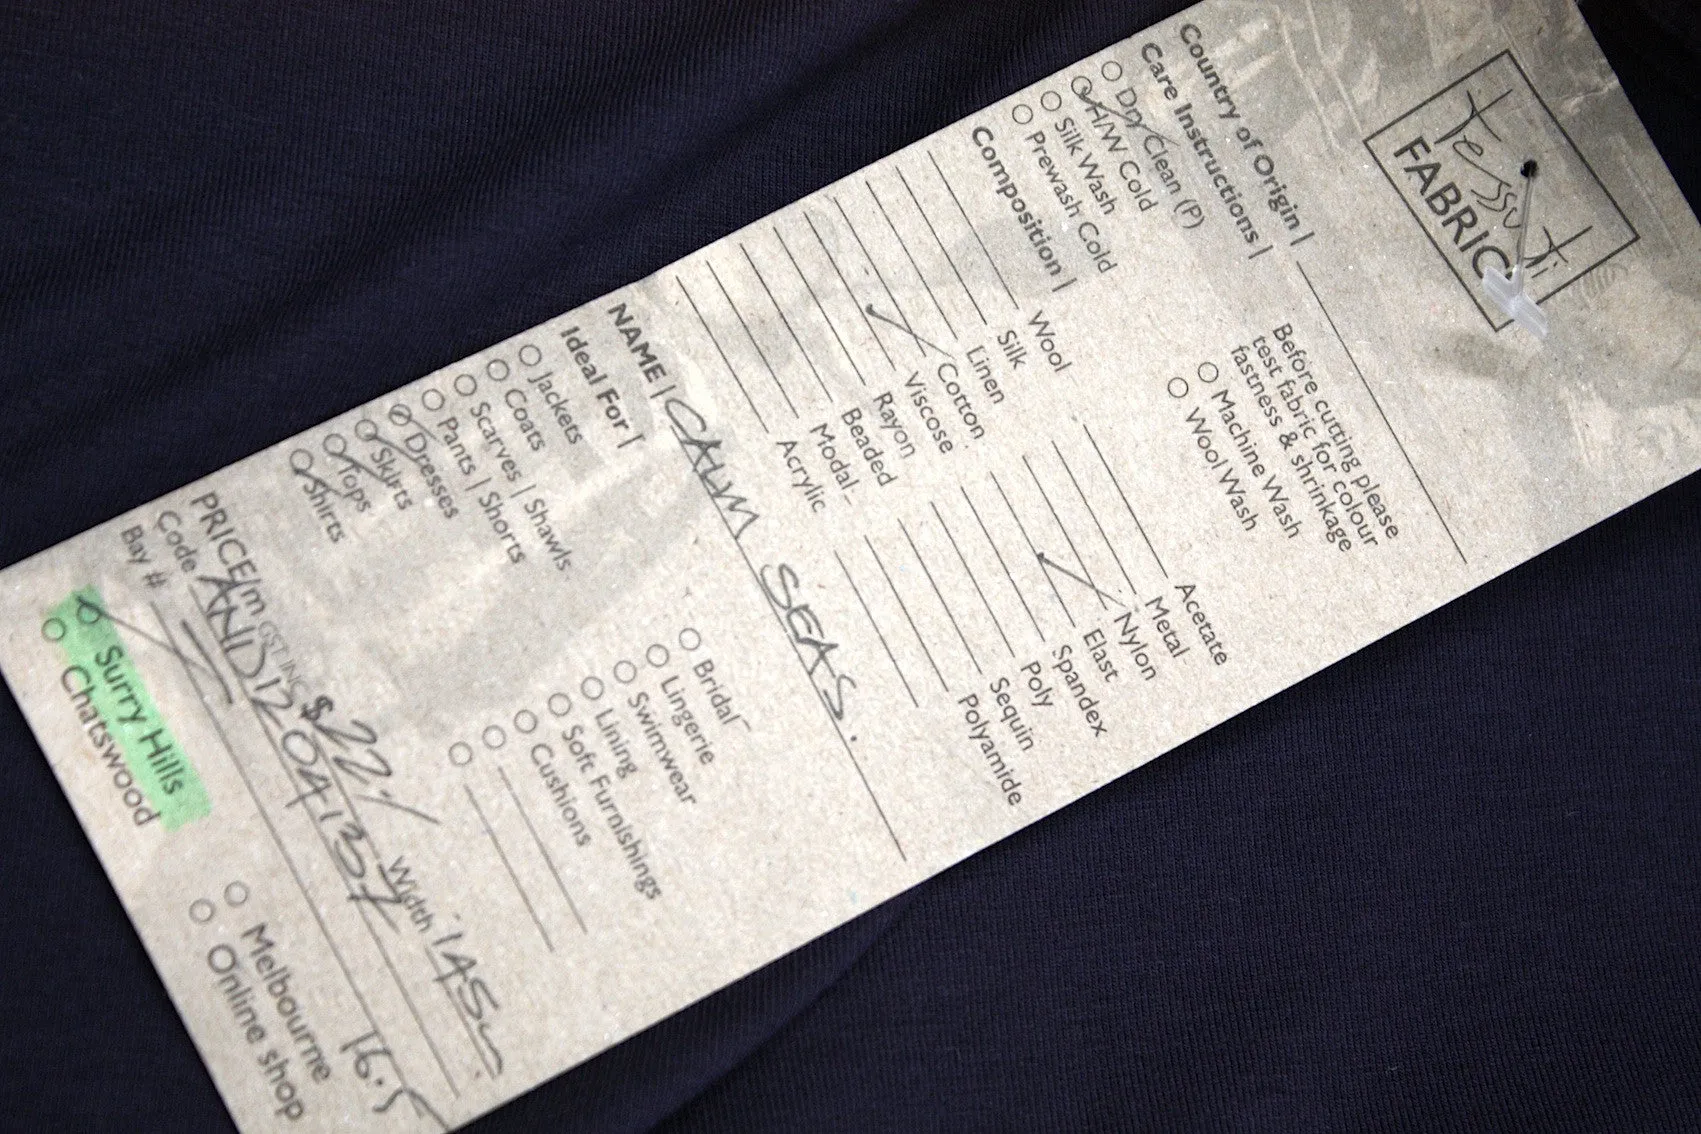 Tessuti
FABRICS
Country of Origin |
Care Instructions |
Before cutting please
test fabric for colour
fastness & shrinkage
Dry Clean (P)
H/W Cold
Silk Wash
Prewash Cold
Machine Wash
Wool Wash
Composition |
Wool
Silk
Linen
Cotton
Viscose
Rayon
Beaded
Modal
Acrylic
Acetate
Metal
Nylon
Elast
Spandex
Poly
Sequin
Polyamide
NAME | CALM SEAS.
Ideal For |
Jackets
Coats
Scarves | Shawls
Pants | Shorts
Dresses
Skirts
Tops
Shirts
Bridal
Lingerie
Swimwear
Lining
Soft Furnishings
Cushions
PRICE/m GST INC $22.
Width 145
Code
Bay #
16.5
Surry Hills
Chatswood
Melbourne
Online shop